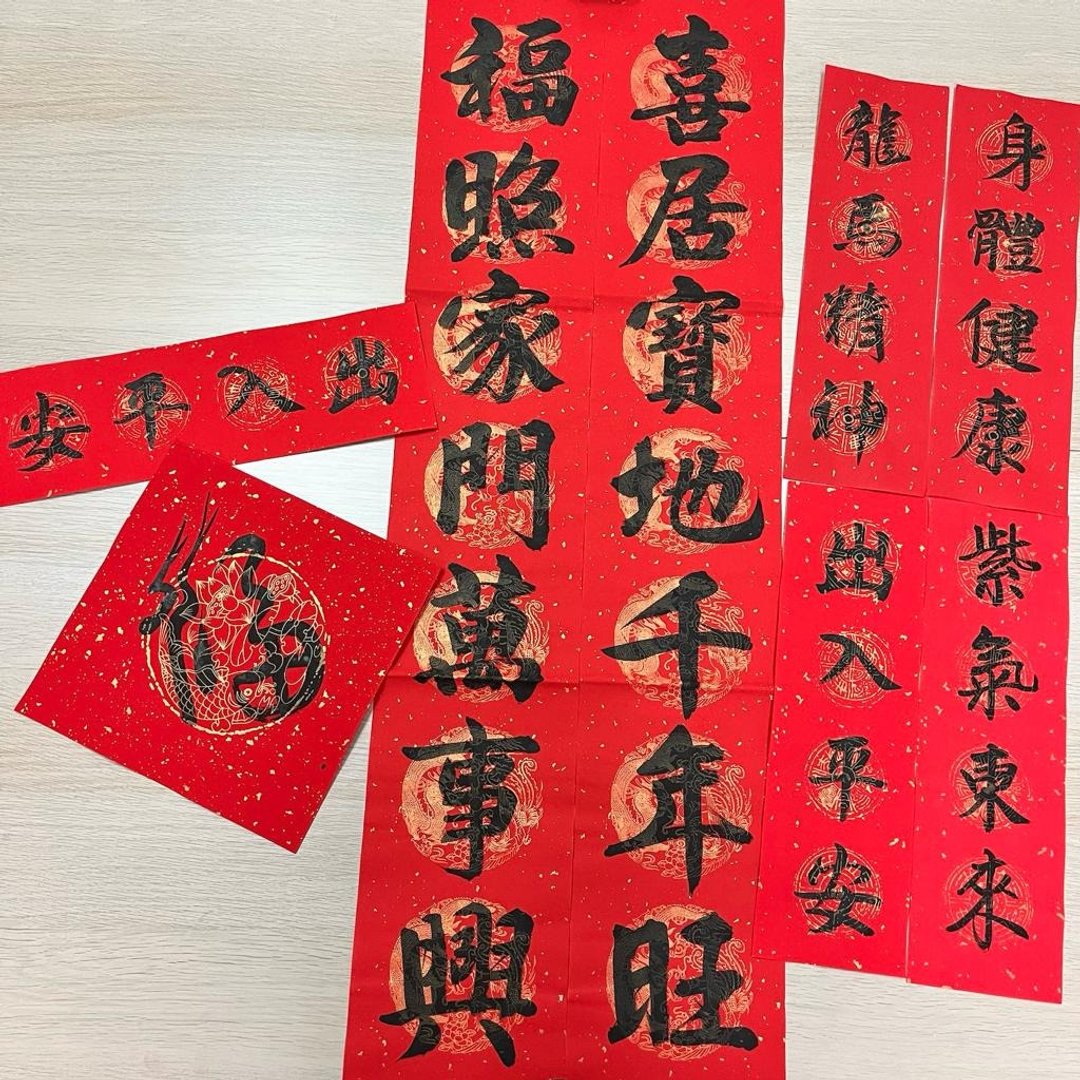 喜居寶地千年旺
福照家門萬事興
身體健康
龍馬精神
紫氣東來
出入平安
出入平安